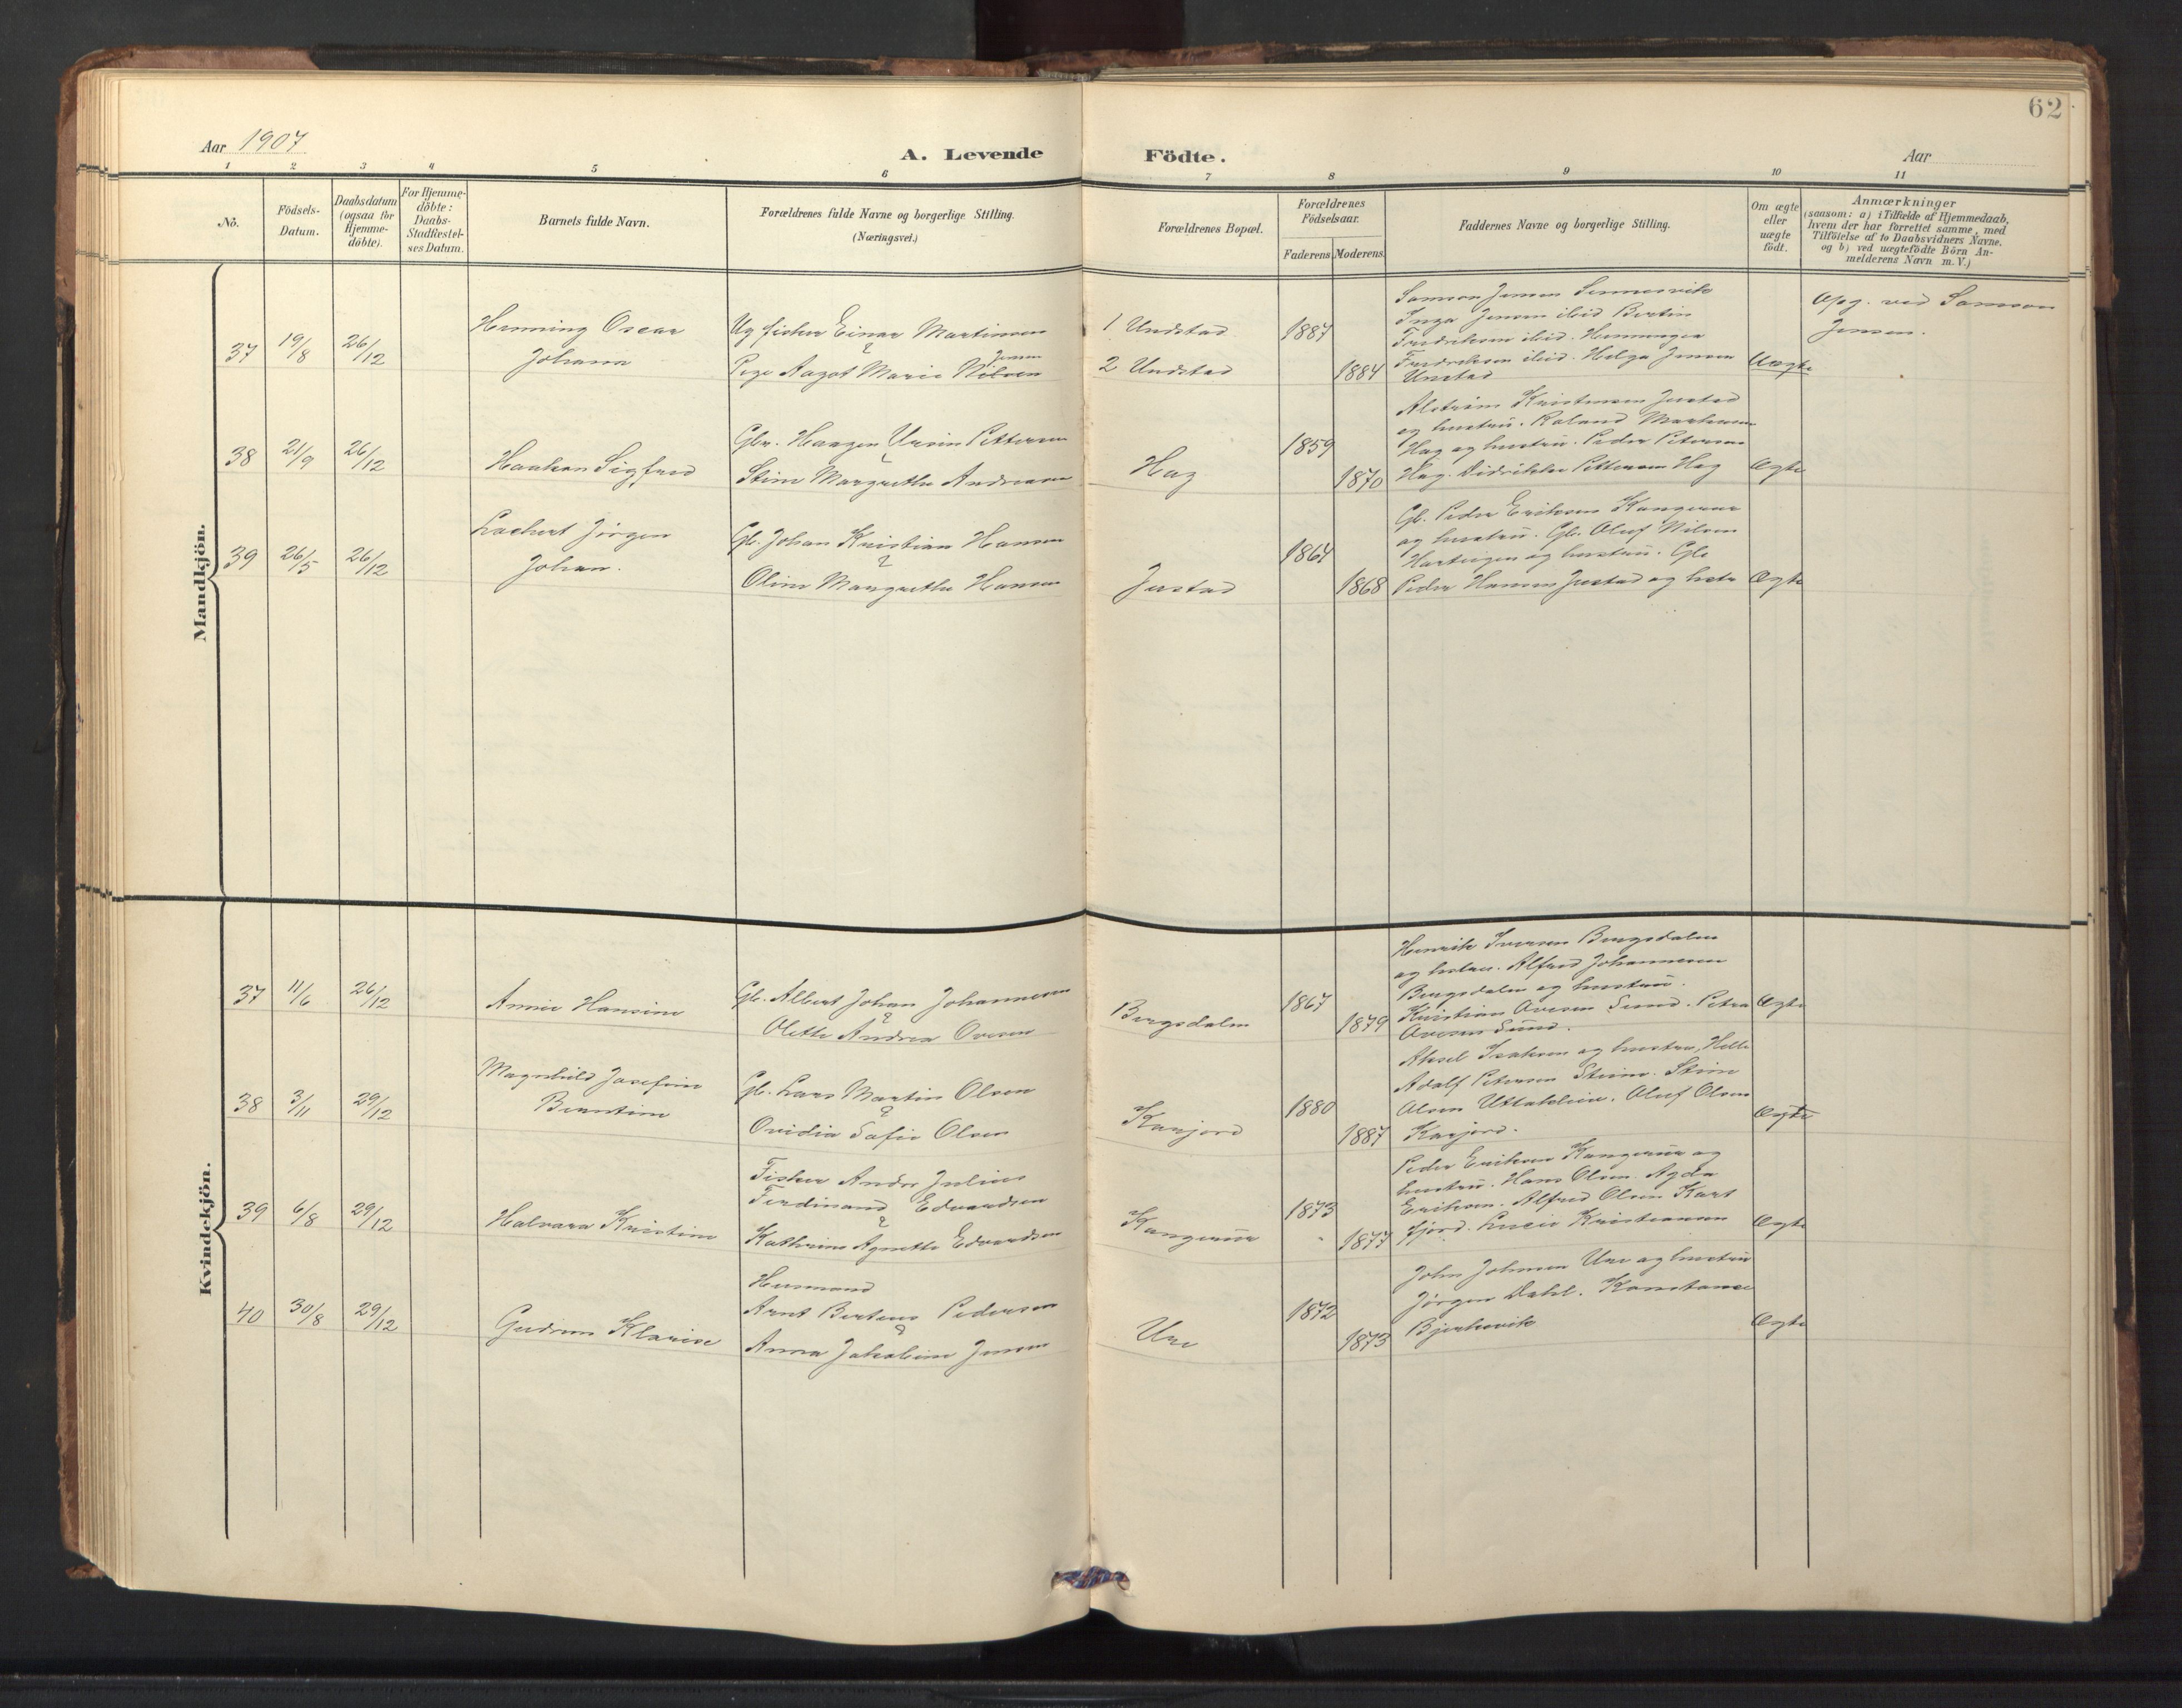 62
Aar 1907
A. Levende Födte.
Aar
1 2 3 4 5 6 7 8 9 10 11
No.
Födsels-
Datum.
Daabsdatum
(ogsaa for
Hjemme-
döbte).
For Hjemme-
döbte:
Daabs-
Stadfæstel-
ses Datum.
Barnets fulde Navn.
Forældrenes fulde Navne og borgerlige Stilling.
(Næringsvei.)
Forældrenes Bopæl.
Forældrenes
Födselsaar.
Faderens. Moderens.
Faddernes Navne og borgerlige Stilling.
Om ægte
eller
uægte
födt.
Anmærkninger
(saasom: a) i Tilfælde af Hjemmedaab,
hvem der har forrettet samme, med
Tilföielse af to Daabsvidners Navne.
og b) ved uægtefödte Börn An-
melderens Navn m. V.)
Mandkjön.
37 19/8 26/12
Henning Oscar
Johann
Ug fisker Einar Martinsen
Pige Aagot Marie Nilsen
Jensen
1 Undstad
2 Undstad
1887
1884
Samson Jensen Sennesvik
Inga Jensen ibid Bertin
Fredriksen ibid. Henningea
Fredriksen ibid. Helga Jensen
Unstad
Uægte
Opg. ved Samson
Jensen.
38 21/9 26/12
Haakon Sigfred
Gbr. Haagen Ursin Pettersen
Stine Margrethe Andreasen
Hag
1859
1870
Alstrøm Kristensen Justad
og hustru. Roland Markussen
Hag og hustru. Peder Petersen
Hag. Didrikke Pettersen Hag
Ægte
39 26/5 26/12
Jørgen
Johan.
Gb. Johan Kristian Hansen
Oline Margrethe Hansen
Justad
1864
1868
Gb. Peder Eriksen Kangerur
og hustru. Gb. Oluf Nilsen
Hartvigen og hustru. Gb.
Peder Hansen Justad og hustr
Ægte
Kvindekjön.
37 11/6 26/12
Annie Hansine
Gb. Albert Johan Johannesen
Olette Andrea Ovesen
Bergsdalen
1867
1879
Henrik Iversen Bergsdalen
og hustru. Alfred Johannesen
Bergsdalen og hustru.
Kristian Ovesen Sund. Petra
Ovesen Sund.
Ægte
38 3/11 29/12
Magnhild Josefine
Berntine
Gb. Lars Martin Olsen
Ovidia Sofie Olsen
Kanjord
1880
1887
Aksel Isaksen og hustru, Helle
Adolf Petersen Steine. Stine
Olsen Uttakleiv. Oluf Olsen
Kanjord.
Ægte
39 6/8 29/12
Halvara Kristine
Fisker Andor Julius
Ferdinand Edvardsen
Kathrine Agnethe Edvardsen
Kangerur
1873
1877
Peder Eriksen Kangerur og
hustru. Hans Olsen. Agda
Eriksen. Alfred Olsen Kart
fjord. Lucie Kristiansen
Ægte
40 30/8 29/12
Gudrun Klarise
Husmand
Arnt Berteus Pedersen
Anna Jakobine Jensen
Ure
1872
1873
John Johnsen Ure og hustru
Jørgen Dahl. Konstance
Bjerkevik
Ægte